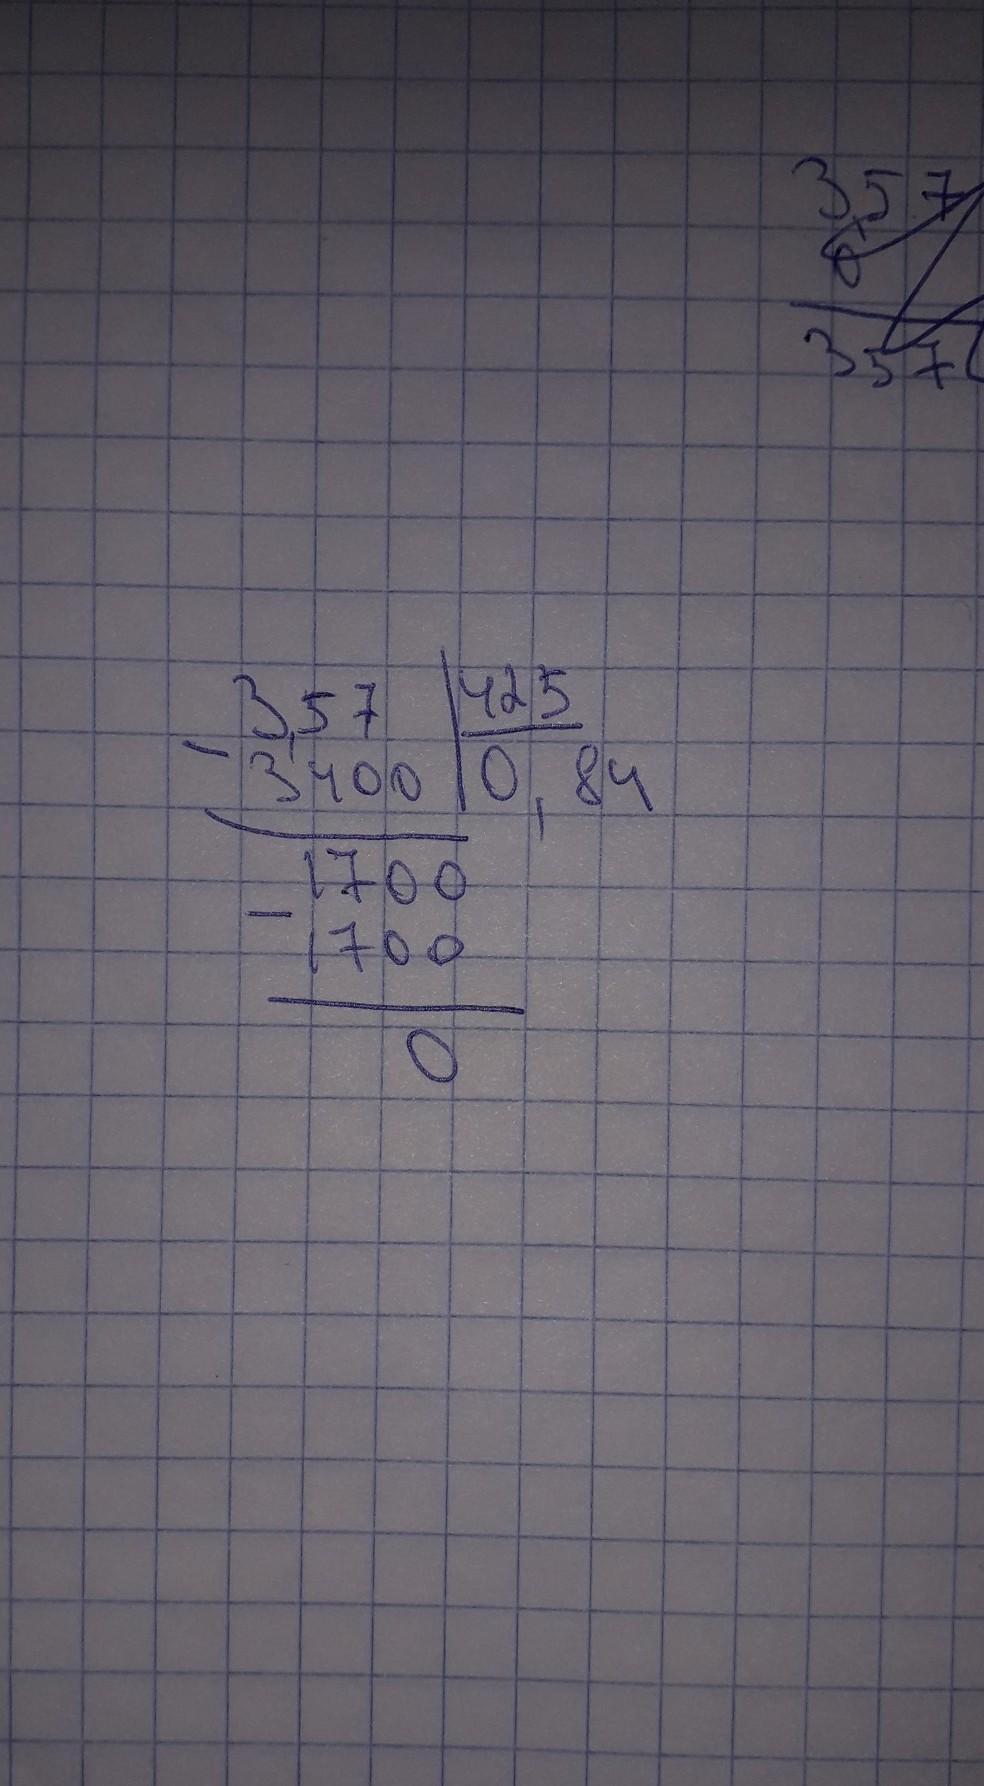 3,57
0
357
3,57 425
- 3400 0,84
1700
- 1700
0